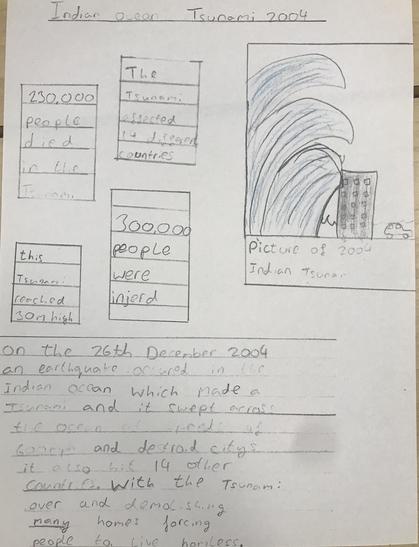 Indian ocean Tsunami 2004
230,000
people
died
in the
Tsunami
The
Tsunami
affected
14
countries
300,000
people
were
injerd
this
Tsunami
reached
30m high
Picture of 2004
Indian Tsunami
on the 26th December 2004
an earthquake occured in the
Indian ocean which made a
Tsunami and it swept across
the ocean at speeds of
and destroid citys
it also hit 14 other
countries. With the Tsunami
over and demolishing
many homes forcing
people to live homless.